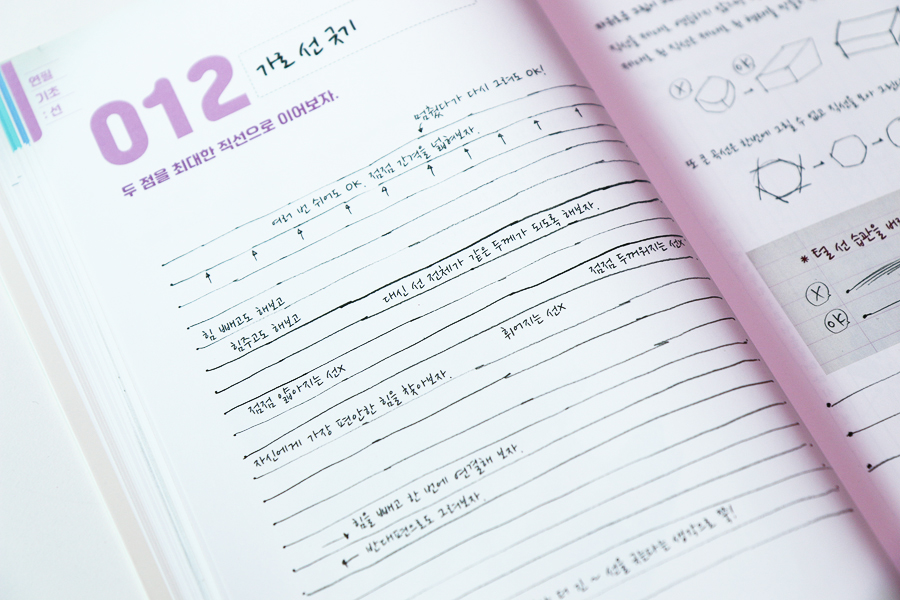 연필
기초
: 선
012 가로 선 긋기
두 점을 최대한 직선으로 이어보자.
멈췄다가 다시 그려도 OK!
여러 번 쉬어도 OK. 점점 간격을 넓혀보자.
힘 빼고도 해보고
힘주고도 해보고
대신 선 전체가 같은 두께가 되도록 해보자.
점점 두꺼워지는 선x
점점 얇아지는 선x
휘어지는 선x
자신에게 가장 편안한 힘을 찾아보자.
힘을 빼고 한 번에 연결해 보자.
반대편으로도 그려보자.
선을 긋는다는 생각으로 쭉!
X
OK
또 큰 곡선은 한번에 그릴 수 없고 직선을
* 털 선 습관을
X
OK